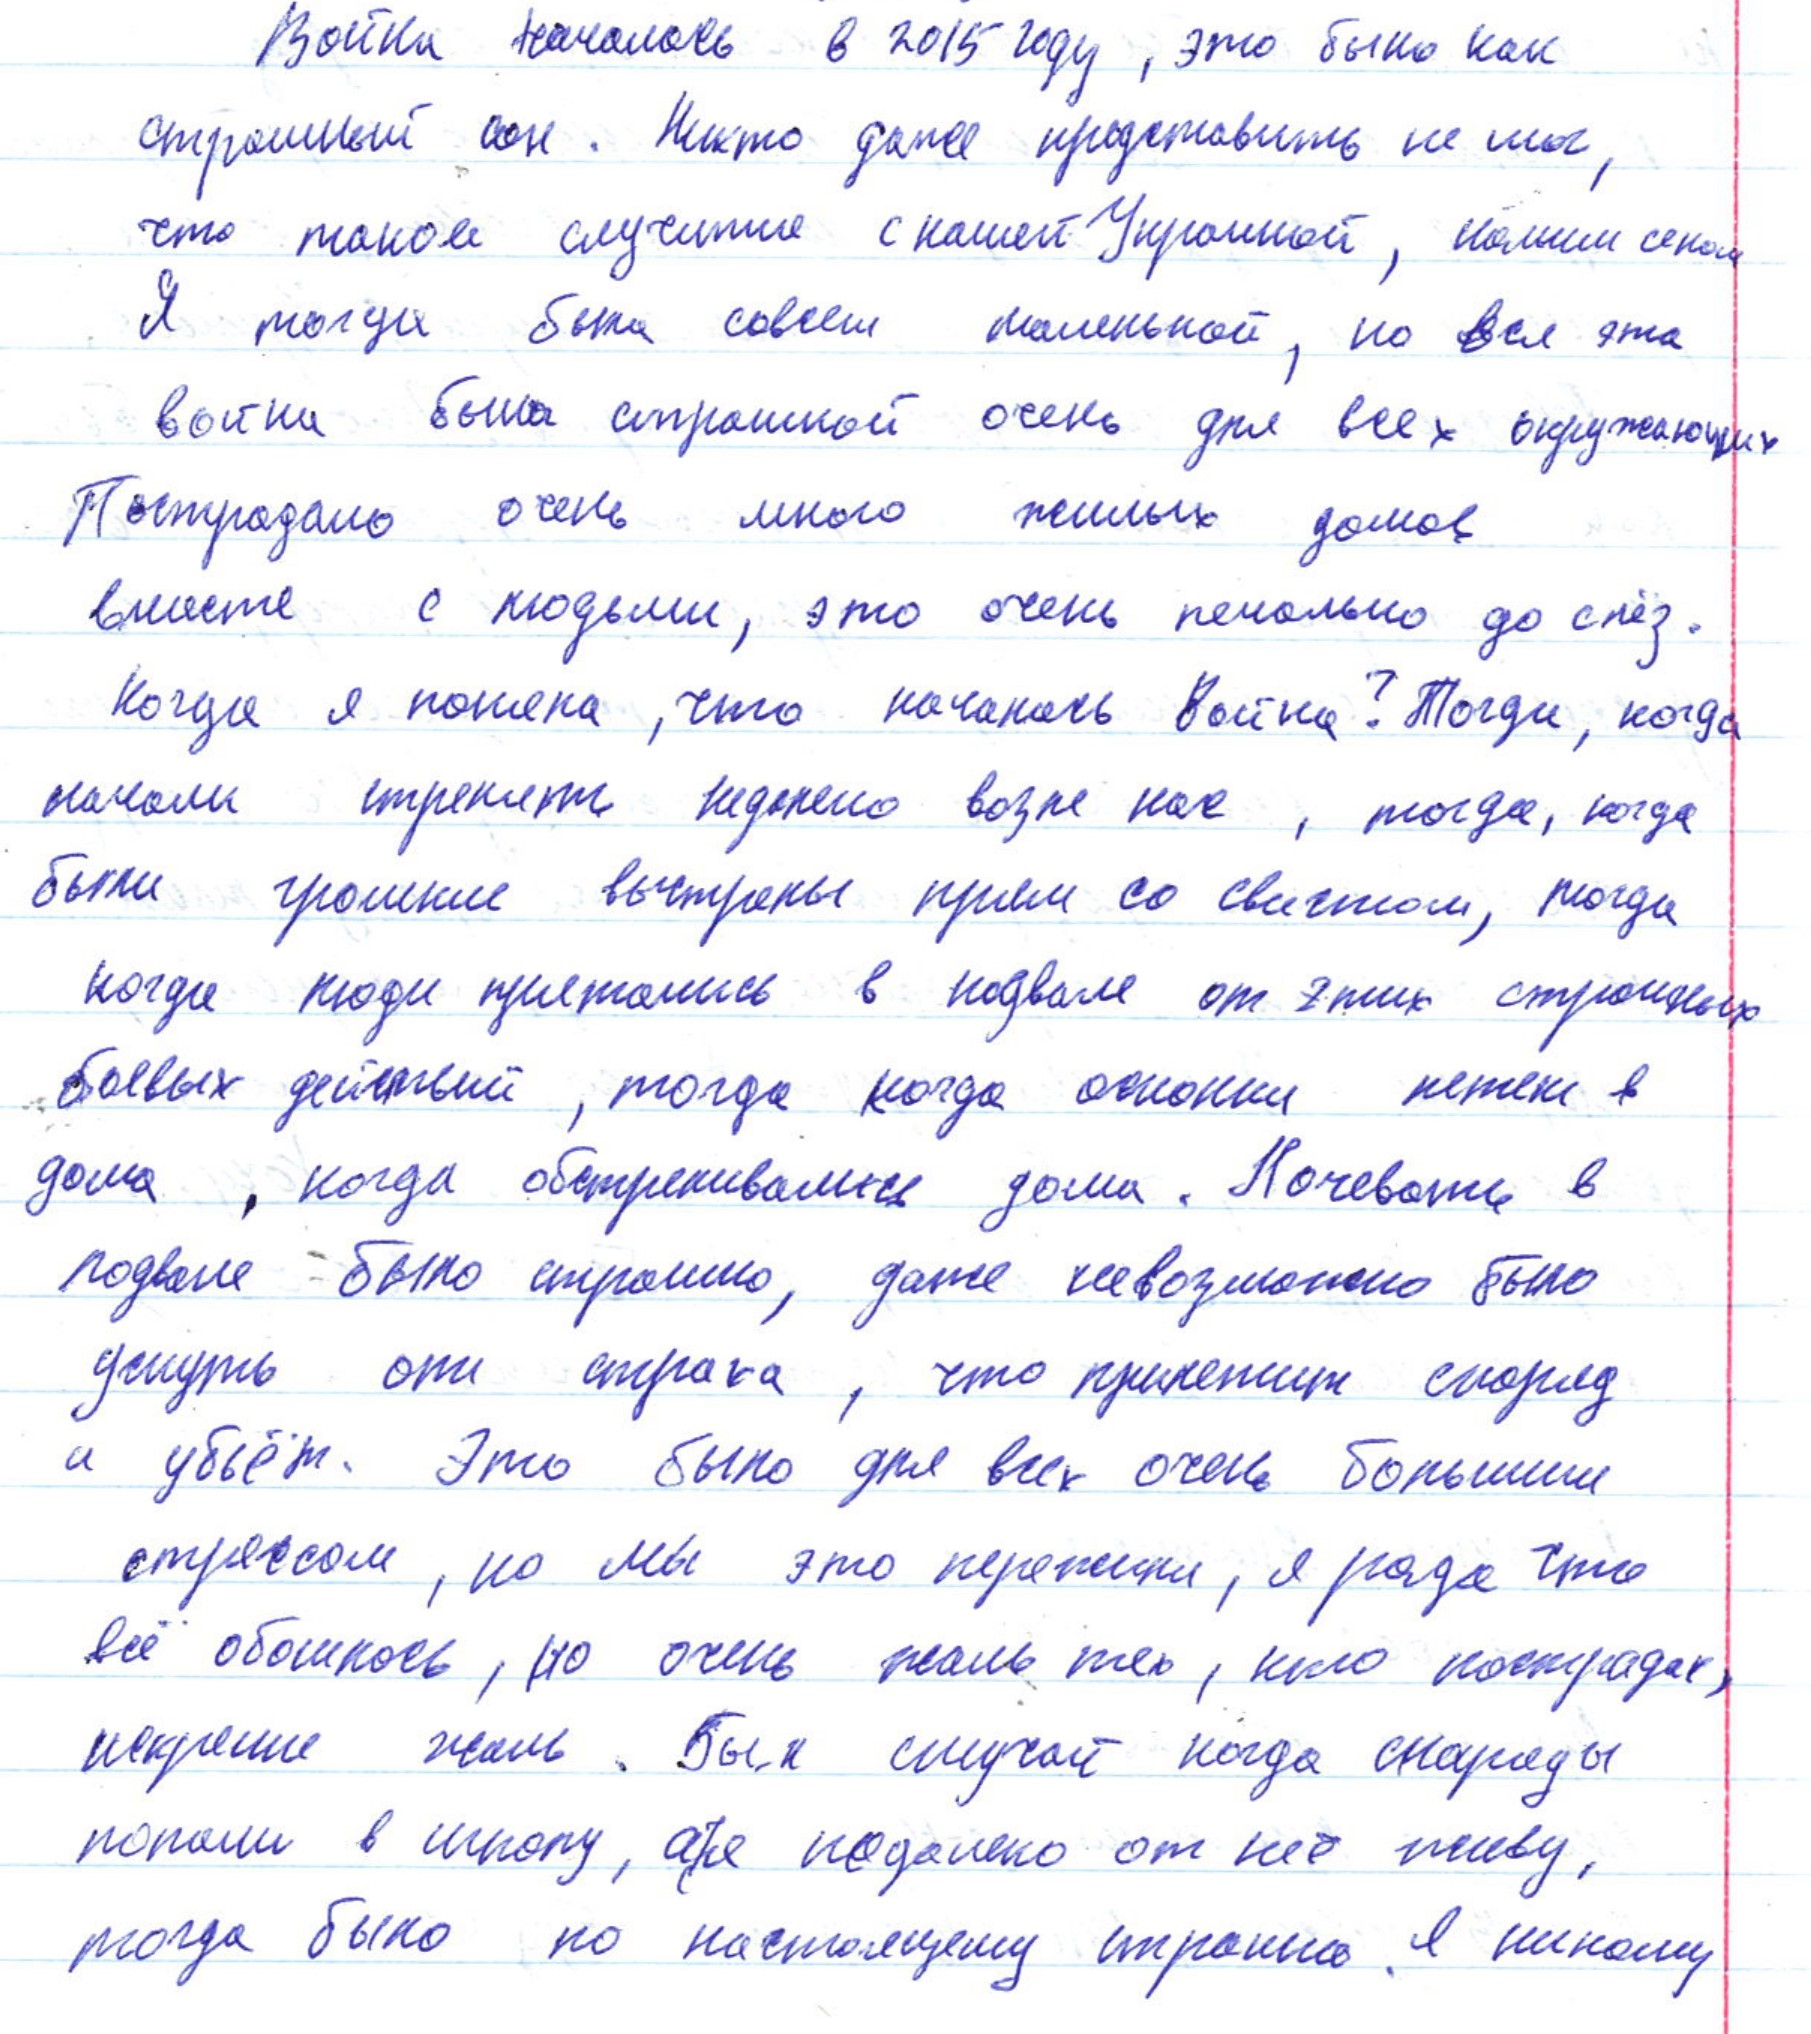 Война началась в 2015 году, это было как
страшный сон. Никто даже представить не мог,
что такое случится с нашей Украиной, нашим селом
Я тогда была совсем маленькой, но вся эта
война была страшной очень для всех окружающих
Пострадало очень много жилых домов
вместе с людьми, это очень печально до слёз.
Когда я поняла, что началась Война? Тогда, когда
начали стрелять недалеко возле нас, тогда, когда
были громкие выстрелы прям со свистом, тогда
когда люди прятались в подвале от этих страшных
боевых действий, тогда когда осколки летели в
дома, когда обстреливались дома. Ночевать в
подвале было страшно, даже невозможно было
уснуть от страха, что прилетит снаряд
и убьёт. Это было для всех очень большим
стрессом, но мы это пережили, я рада что
всё обошлось, но очень жаль тех, кто пострадал,
искренне жаль. Был случай когда снаряды
попали в школу, а я недалеко от неё живу,
тогда было по настоящему страшно. Я никому